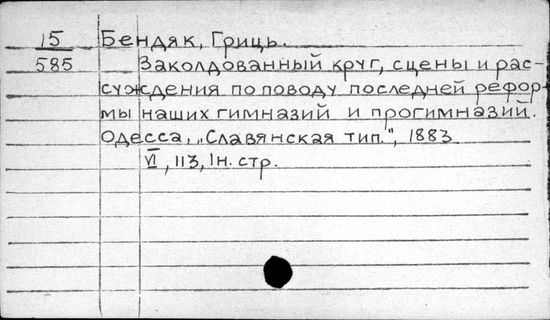 15 Бендяк, Гриць.
585 Заколдованный круг, сцены и рас-
суждения по поводу последней рефор-
мы наших гимназий и прогимназий.
Одесса, „Славянская тип.", 1883.
VI, 113, 1н. стр.